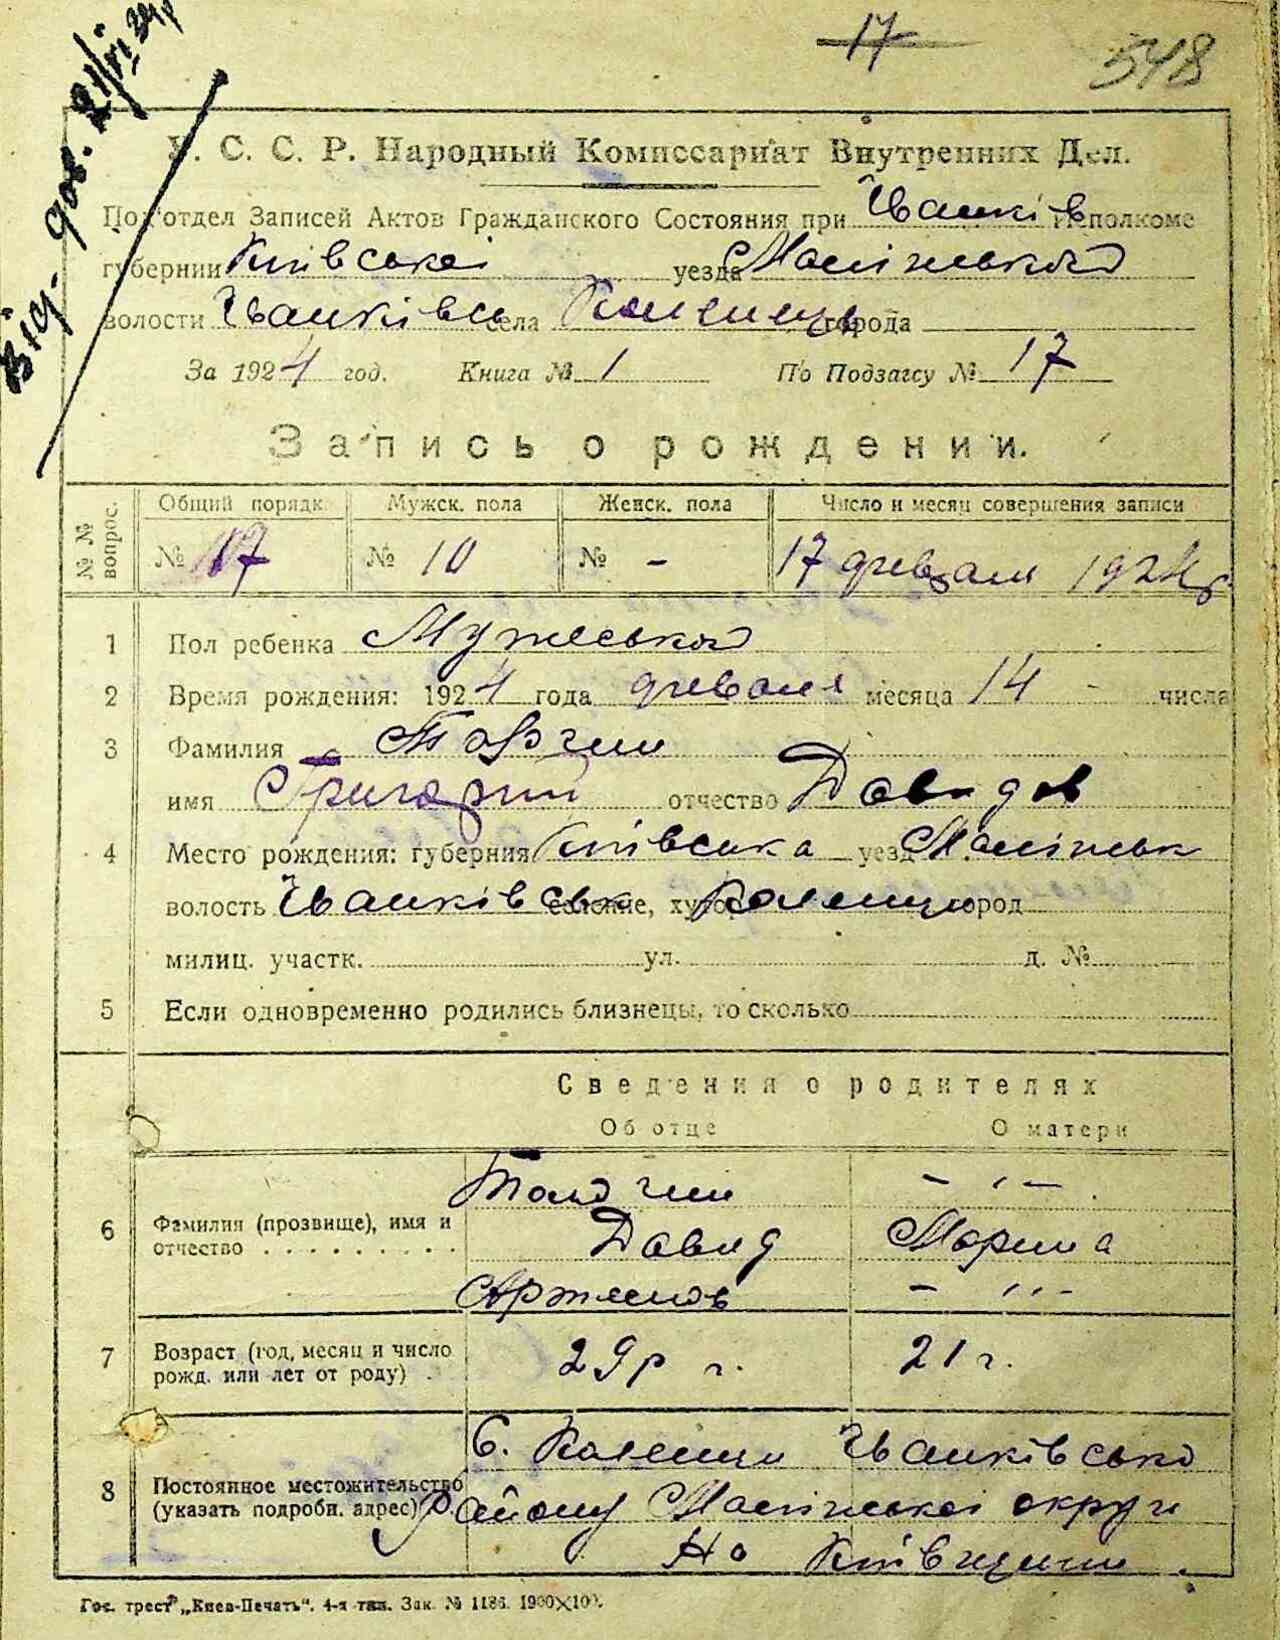 17
548
У. С. С. Р. Народный Комиссариат Внутренних Дел.
Под'отдел Записей Актов Гражданского Состояния при Іванків Исполкоме
губернии Київської уезда Малінського
волости Іванківс села города
За 1924 год. Книга № 1 По Подзагсу № 17
Запись о рождении.
№ № вопрос. Общий порядк. Мужск. пола Женск. пола Число и месяц совершения записи
№ 17 № 10 № - 17 февраля 1924 г
1 Пол ребенка Мужеського
2 Время рождения: 1924 года февраля месяца 14 - числа
3 Фамилия
имя Григорий отчество Давидов
4 Место рождения: губерния Київська уезд Малінськ
волость Іванківськ селение, хутор город
милиц. участк. ул. д. №
5 Если одновременно родились близнецы, то сколько
Сведения о родителях
Об отце О матери
6 Фамилия (прозвище), имя и
отчество
Давид Марина
Артемов
7 Возраст (год, месяц и число
рожд. или лет от роду) . 29 р г. 21 г.
С. Іванківсько
8 Постоянное местожительство
(указать подробн. адрес) Району Малінської округи
На Київщини.
Гос. трест „Киев-Печать“. 4-я тип. Зак. № 1186. 1900×100.